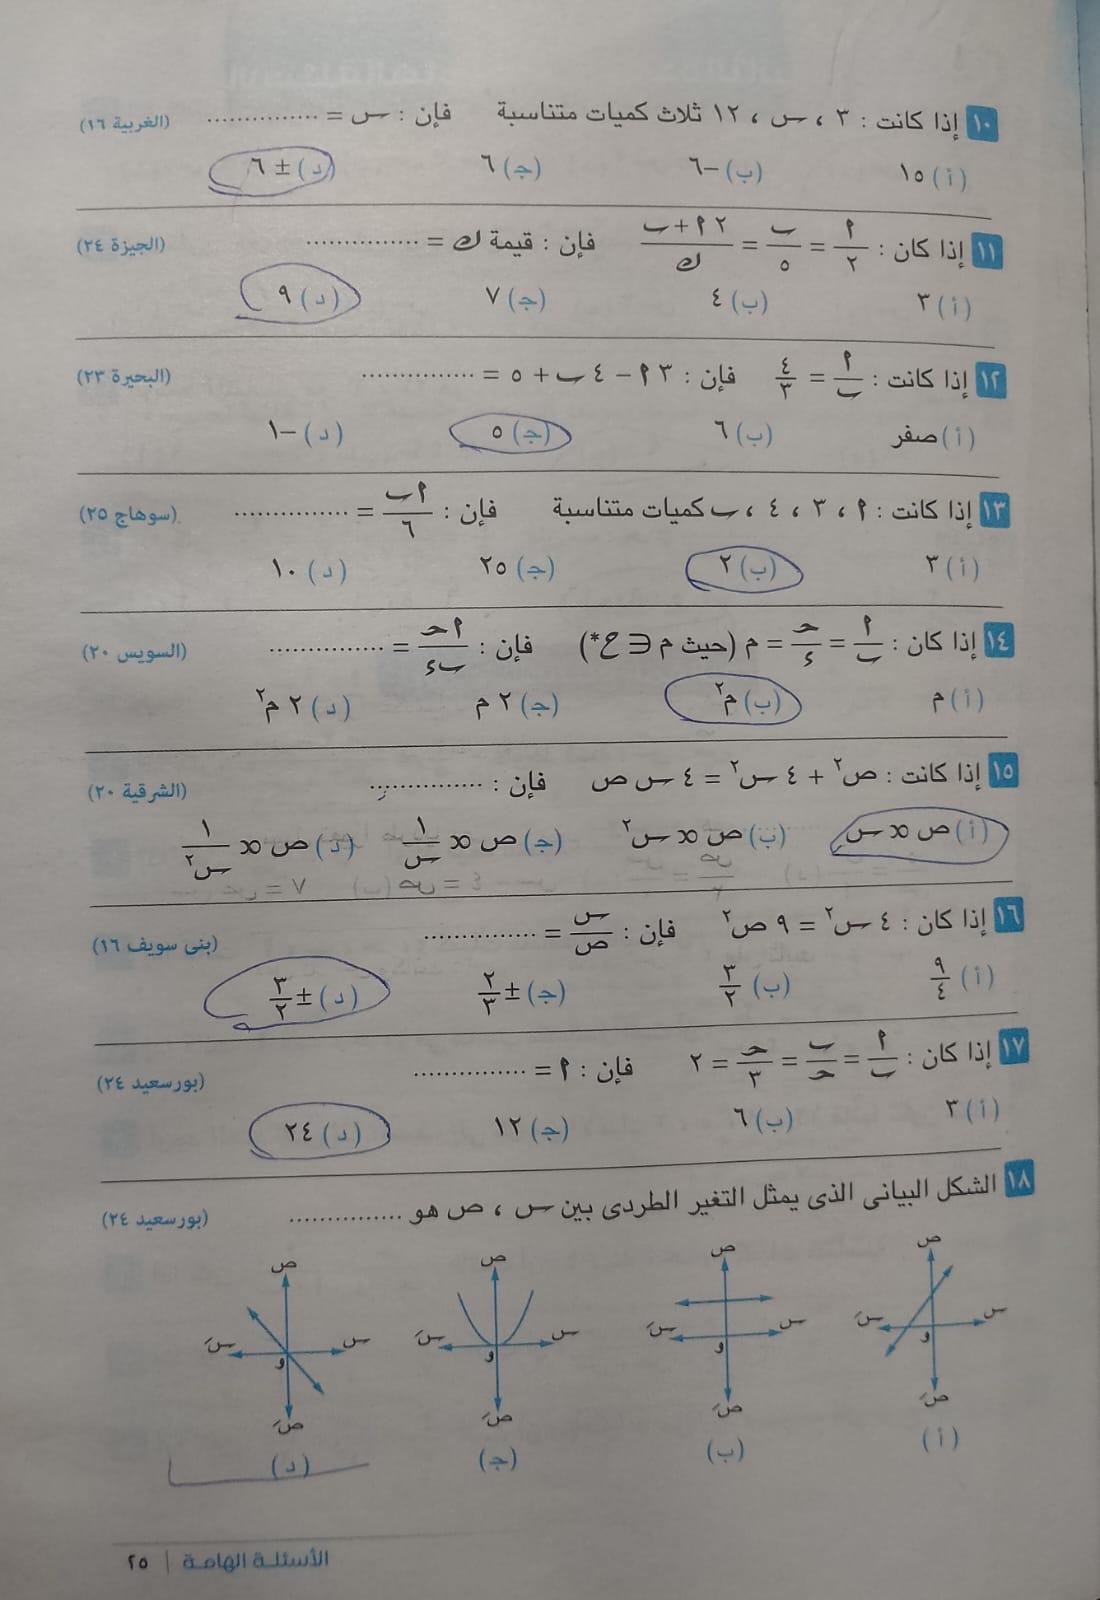 ١٠ إذا كانت : ٣ ، س ، ١٢ ثلاث كميات متناسبة فإن : س = ............... (الغربية ١٦)
(أ) ١٥ (ب) -٦ (ج) ٦ (د) ± ٦
١١ إذا كان : م/٢ = ب/٥ = (٢ م + ب)/ك فإن : قيمة ك = ............... (الجيزة ٢٤)
(أ) ٣ (ب) ٤ (ج) ٧ (د) ٩
١٢ إذا كانت : م/ب = ٤/٣ فإن : ٣ م - ٤ ب + ٥ = ............... (البحيرة ٢٣)
(أ) صفر (ب) ٦ (ج) ٥ (د) -١
١٣ إذا كانت : م ، ٣ ، ٤ ، ب كميات متناسبة فإن : م ب/٦ = ............... (سوهاج ٢٥)
(أ) ٣ (ب) ٢ (ج) ٢٥ (د) ١٠
١٤ إذا كان : م/ب = حـ/ء = م (حيث م ∈ ع*) فإن : م حـ/ب ء = ............... (السويس ٢٠)
(أ) م (ب) م² (ج) ٢ م (د) ٢ م²
١٥ إذا كانت : ص² + ٤ س² = ٤ س ص فإن : ............... (الشرقية ٢٠)
(أ) ص ∝ س (ب) ص ∝ س² (ج) ص ∝ ١/س (د) ص ∝ ١/س²
١٦ إذا كان : ٤ س² = ٩ ص² فإن : س/ص = ............... (بنى سويف ١٦)
(أ) ٩/٤ (ب) ٣/٢ (ج) ± ٢/٣ (د) ± ٣/٢
١٧ إذا كان : م/ب = ب/حـ = حـ/٣ = ٢ فإن : م = ............... (بورسعيد ٢٤)
(أ) ٣ (ب) ٦ (ج) ١٢ (د) ٢٤
١٨ الشكل البيانى الذى يمثل التغير الطردى بين س ، ص هو ............... (بورسعيد ٢٤)
ص ص ص ص
س سَ س سَ س سَ س سَ
و و و و
صَ صَ صَ صَ
(أ) (ب) (ج) (د)
الأسئلة الهامة | ٢٥